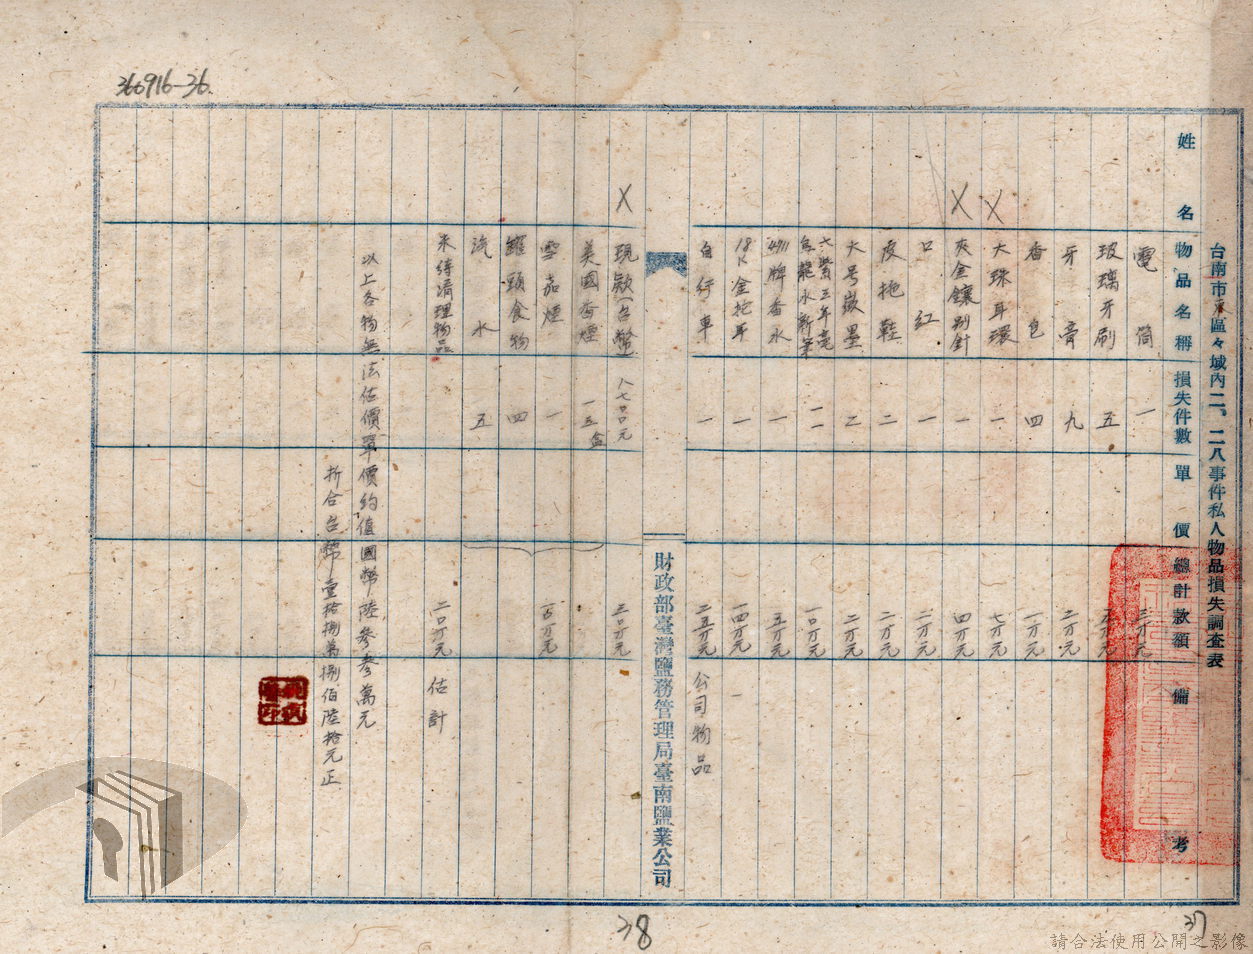 366916-36.
台南市東區々域內二。二八事件私人物品損失調查表
姓名 物品名稱 損失件數 單價 總計款額 備考
電筒 一 三万元
玻璃牙刷 五 五万元
牙膏 九 二万元
香皂 四 一万元
X 大珠耳環 一 七万元
X 灰金鑲別針 一 四万元
口紅 一 二万元
皮拖鞋 二 二万元
大号徽墨 2 二万元
一一 一〇万元
4711牌香水 一 五万元
18K金 一 一四万元
自行車 一 二五万元 公司物品
財政部臺灣鹽務管理局臺南鹽業公司
X 現款(台幣) 八七〇〇元 三〇万元
美國香煙 一五盒
雪茄煙 一 一百万元
罐頭食物 四
汽水 五
未得清理物品 二〇万元 估計
以上各物無法估價單價約值國幣陸參參萬元
折合台幣壹拾捌萬捌佰陸拾元正
37
38
請合法使用公開之影像